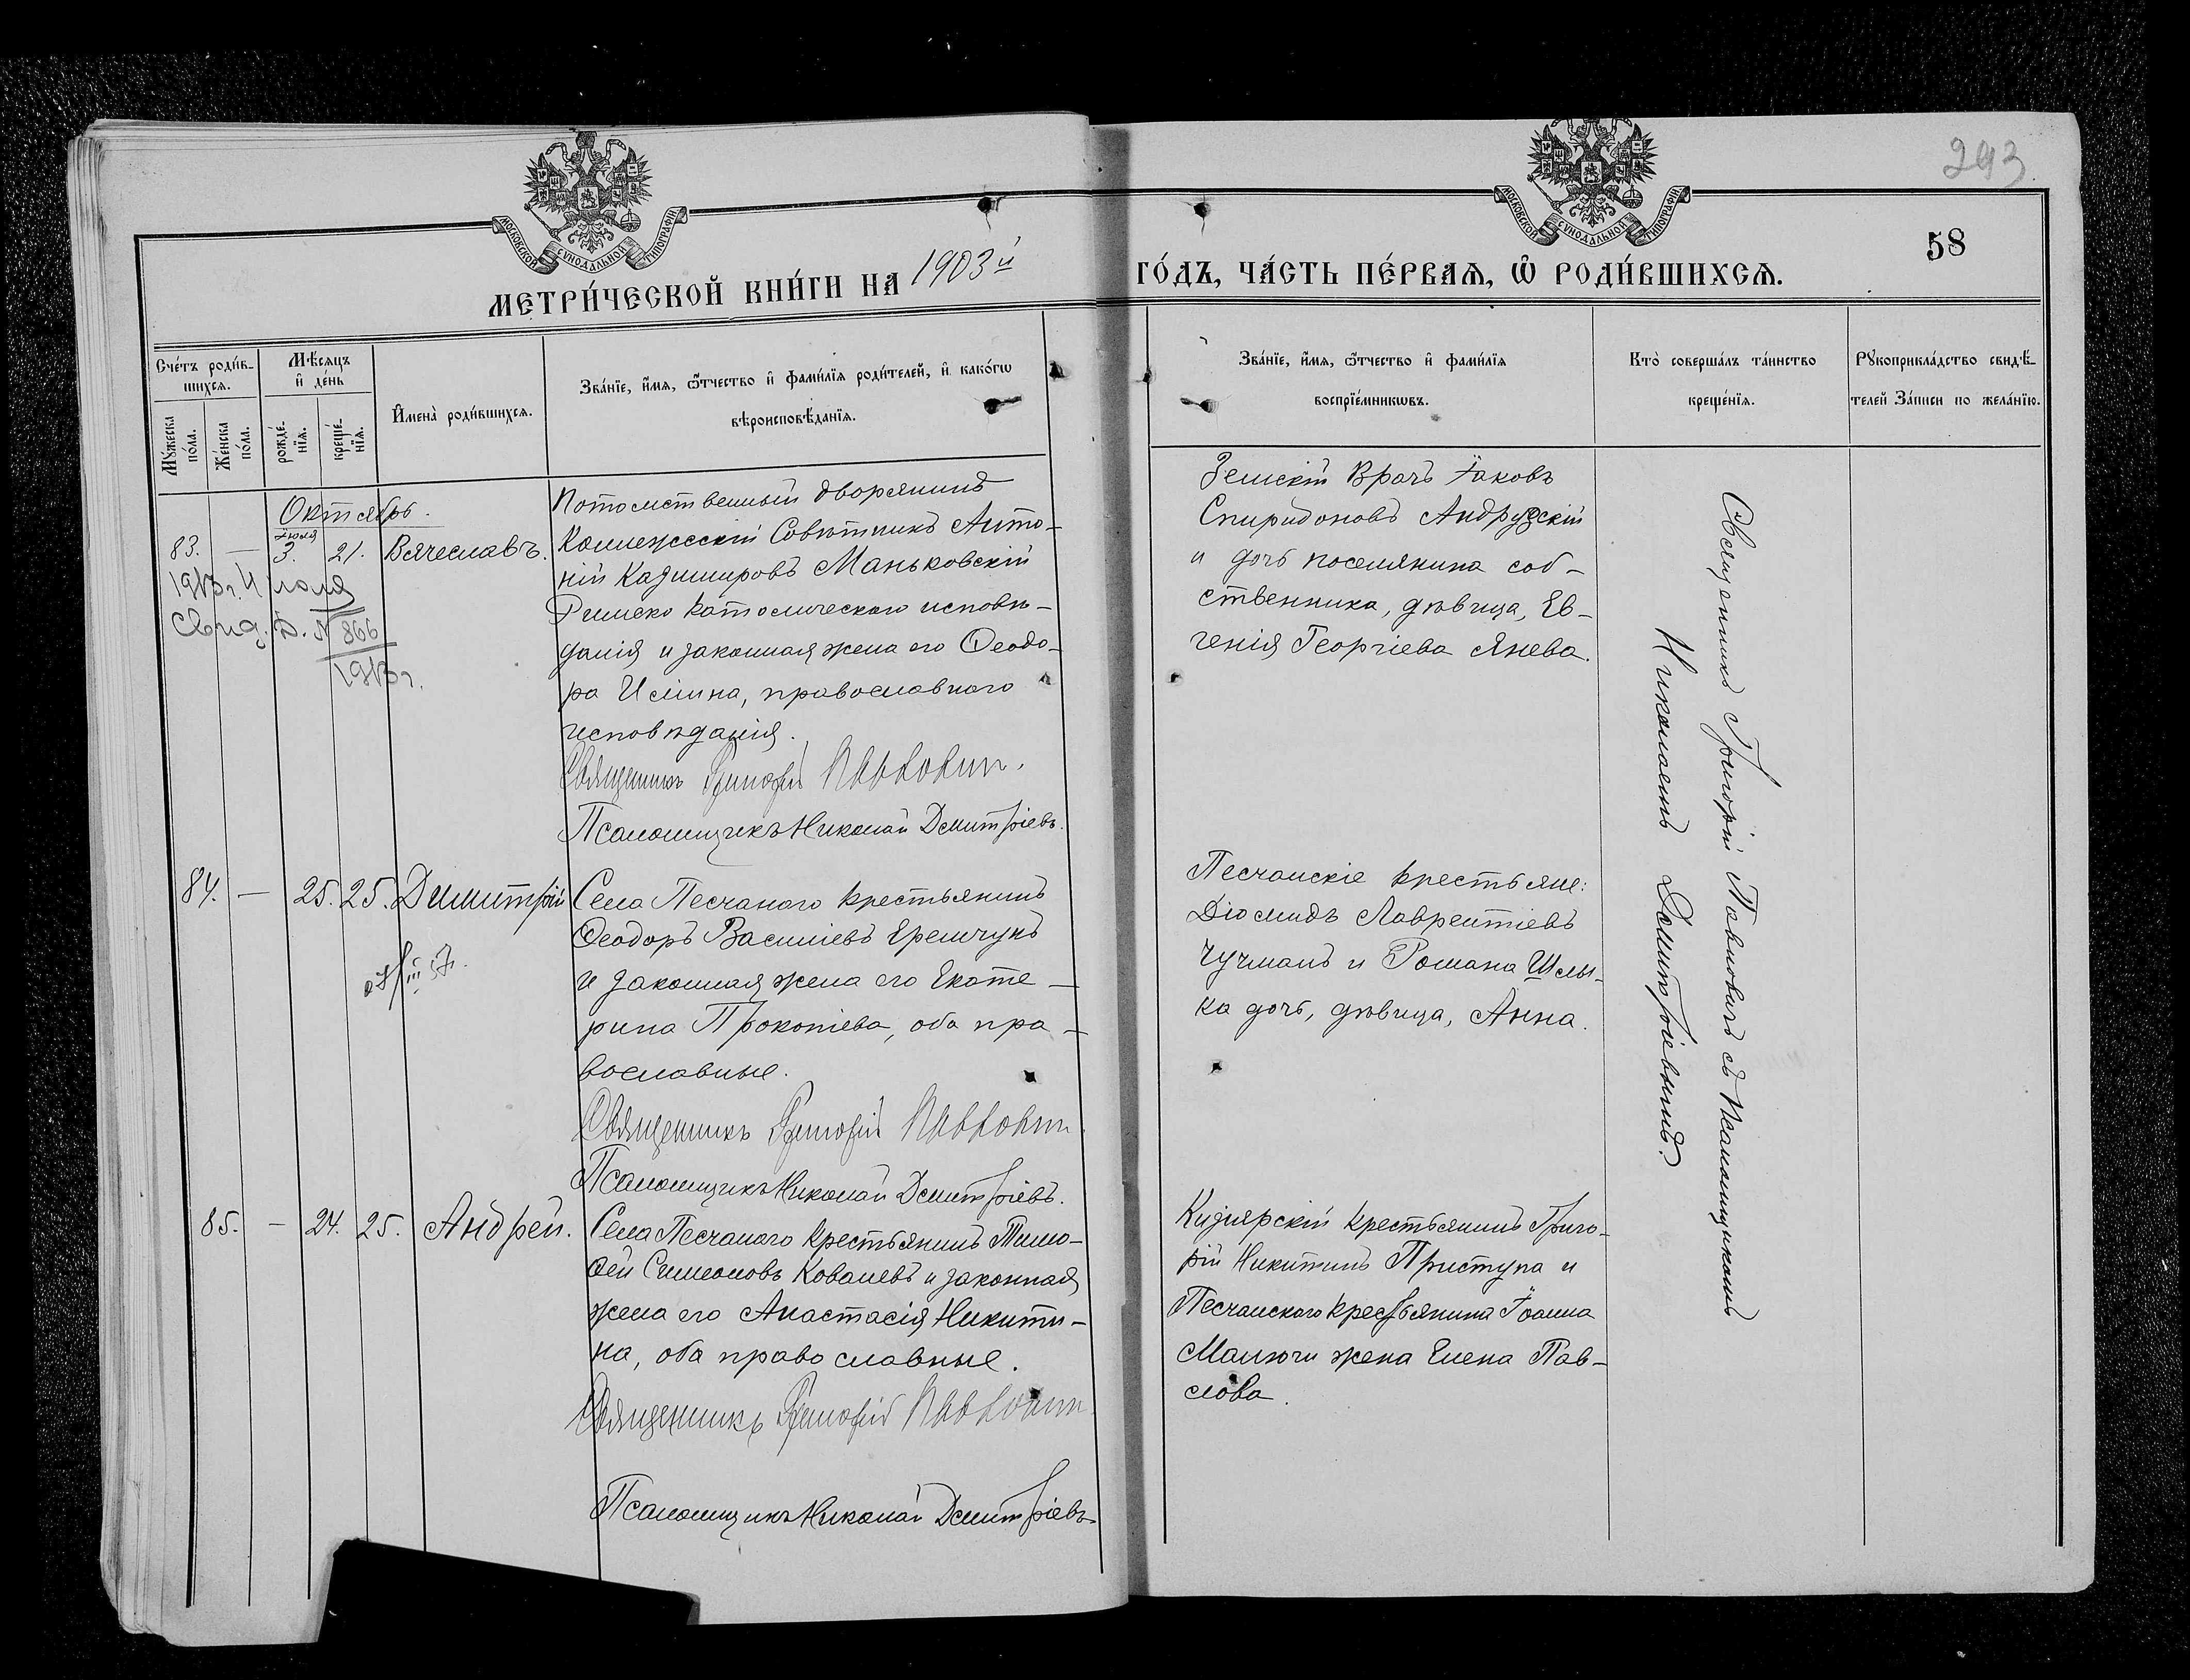 293
МОСКОВСКОЙ СУНОДАЛЬНОЙ ТИПОГРАФІИ
МОСКОВСКОЙ СУНОДАЛЬНОЙ ТИПОГРАФІИ
58
МЕТРИ́ЧЕСКОЙ КНИ́ГИ НА 1903й
ГО́ДЪ, ЧА́СТЬ ПЕ́РВАѦ, Ѡ҆ РОДИ́ВШИХСѦ.
Сче́тъ роди́в-
шихсѧ.
Мꙋ́жеска по́ла.
Же́нска по́ла.
Мѣ́сѧцъ и҆ де́нь
рожде́-нїѧ.
креще́-нїѧ.
И҆мена̀ роди́вшихсѧ.
Зва́нїе, и҆́мѧ, ѻ҆́тчество и҆ фами́лїѧ роди́телей, и҆ како́гѡ
вѣроисповѣ́данїѧ.
Зва́нїе, и҆́мѧ, ѻ҆́тчество и҆ фами́лїѧ
воспрїе́мникѡвъ.
Кто̀ соверша́лъ та́инство
креще́нїѧ.
Рꙋкоприкла́дство свидѣ́-
телей За́писи по жела́нїю.
Октябрь.
83. — Іюля 3. 21. Вячеславъ.
1913 г. Июля
Свид. №866
1913 г.
Потомственный дворянинъ
Коллежскій Совѣтникъ Анто-
ній Казимировъ Маньковскій
Римско католическаго исповѣ-
данія и законная жена его Ѳеодо-
ра Ильина, православнаго
исповѣданія.
Священникъ Григорій Павловичъ.
Псаломщикъ Николай Дмитріевъ.
Земскій Врачъ Іаковъ
Спиридоновъ Андрузскій
и дочь поселянина соб-
ственника, дѣвица, Ев-
генія Георгіева Янева.
Священникъ Григорій Павловичъ съ Псаломщикомъ
Николаемъ Дмитріевымъ.
84. — 25. 25. Димитрій
Села Песчанаго крестьянинъ
Ѳеодоръ Василіевъ Еремчукъ
и законная жена его Екате-
рина Прокопіева, оба пра-
вославные.
Священникъ Григорій Павловичъ.
Псаломщикъ Николай Дмитріевъ.
Песчанскіе крестьяне:
Діомидъ Лаврентіевъ
Чучманъ и Романа Шлы-
ка дочь, дѣвица, Анна.
85. — 24. 25. Андрей.
Села Песчанаго крестьянинъ Тимо-
ѳей Симеоновъ Ковалевъ и законная
жена его Анастасія Никити-
на, оба православные.
Священникъ Григорій Павловичъ.
Псаломщикъ Николай Дмитріевъ
Кизіярскій крестьянинъ Григо-
рій Никитинъ Приступа и
Песчанскаго крестьянина Іоанна
Малюги жена Елена Пав-
лова.